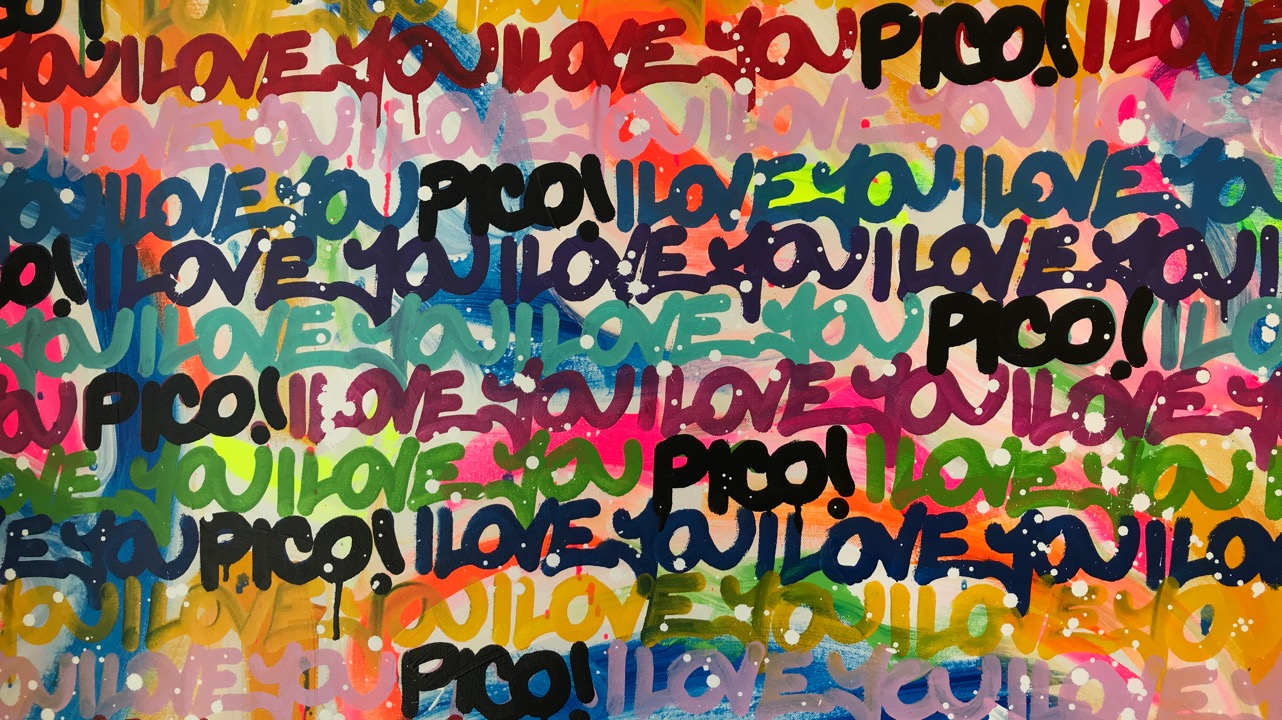 O! YOU I LOVE YOU I LOVE YOU PICO! I LOVE
YOU I LOVE YOU I LOVE YOU I LOVE YOU I LOVE
YOU I LOVE YOU PICO! I LOVE YOU I LOVE YOU
O! I LOVE YOU I LOVE YOU I LOVE YOU I
YOU I LOVE YOU I LOVE YOU PICO! I LO
OU PICO! I LOVE YOU I LOVE YOU I LOVE Y
OVE YOU I LOVE YOU PICO! I LOVE YOU
E YOU PICO! I LOVE YOU I LOVE YOU I LO
YOU I LOVE YOU I LOVE YOU I LOVE YO
YOU I LOVE YOU PICO! I LOVE YOU I LOVE Y